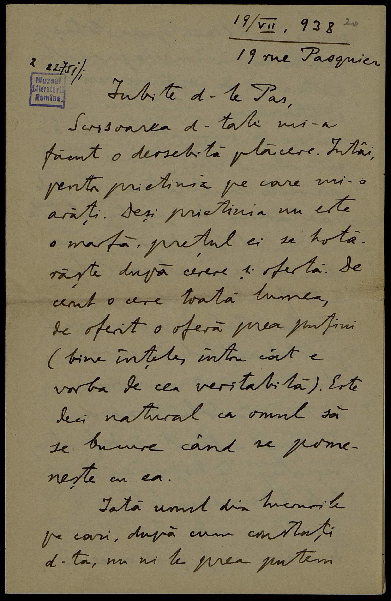 19/VII, 938
19 rue Pasquier
2 22751/1
Muzeul
Literaturii
Române
Iubite d-le Pas,
Scrisoarea d-tale mi-a
făcut o deosebită plăcere. Întâi,
pentru prietinia pe care mi-o
arăți. Deși prietinia nu este
o marfă, prețul ei se hotă-
răște după cerere și ofertă. De
cerut o cere toată lumea,
de oferit o oferă prea puțini
(bine înțeles, întru cât e
vorba de cea veritabilă). Este
deci natural ca omul să
se bucure când se pome-
nește cu ea.
Iată unul din lucrurile
pe cari, după cum constați
d-ta, nu ni le prea putem